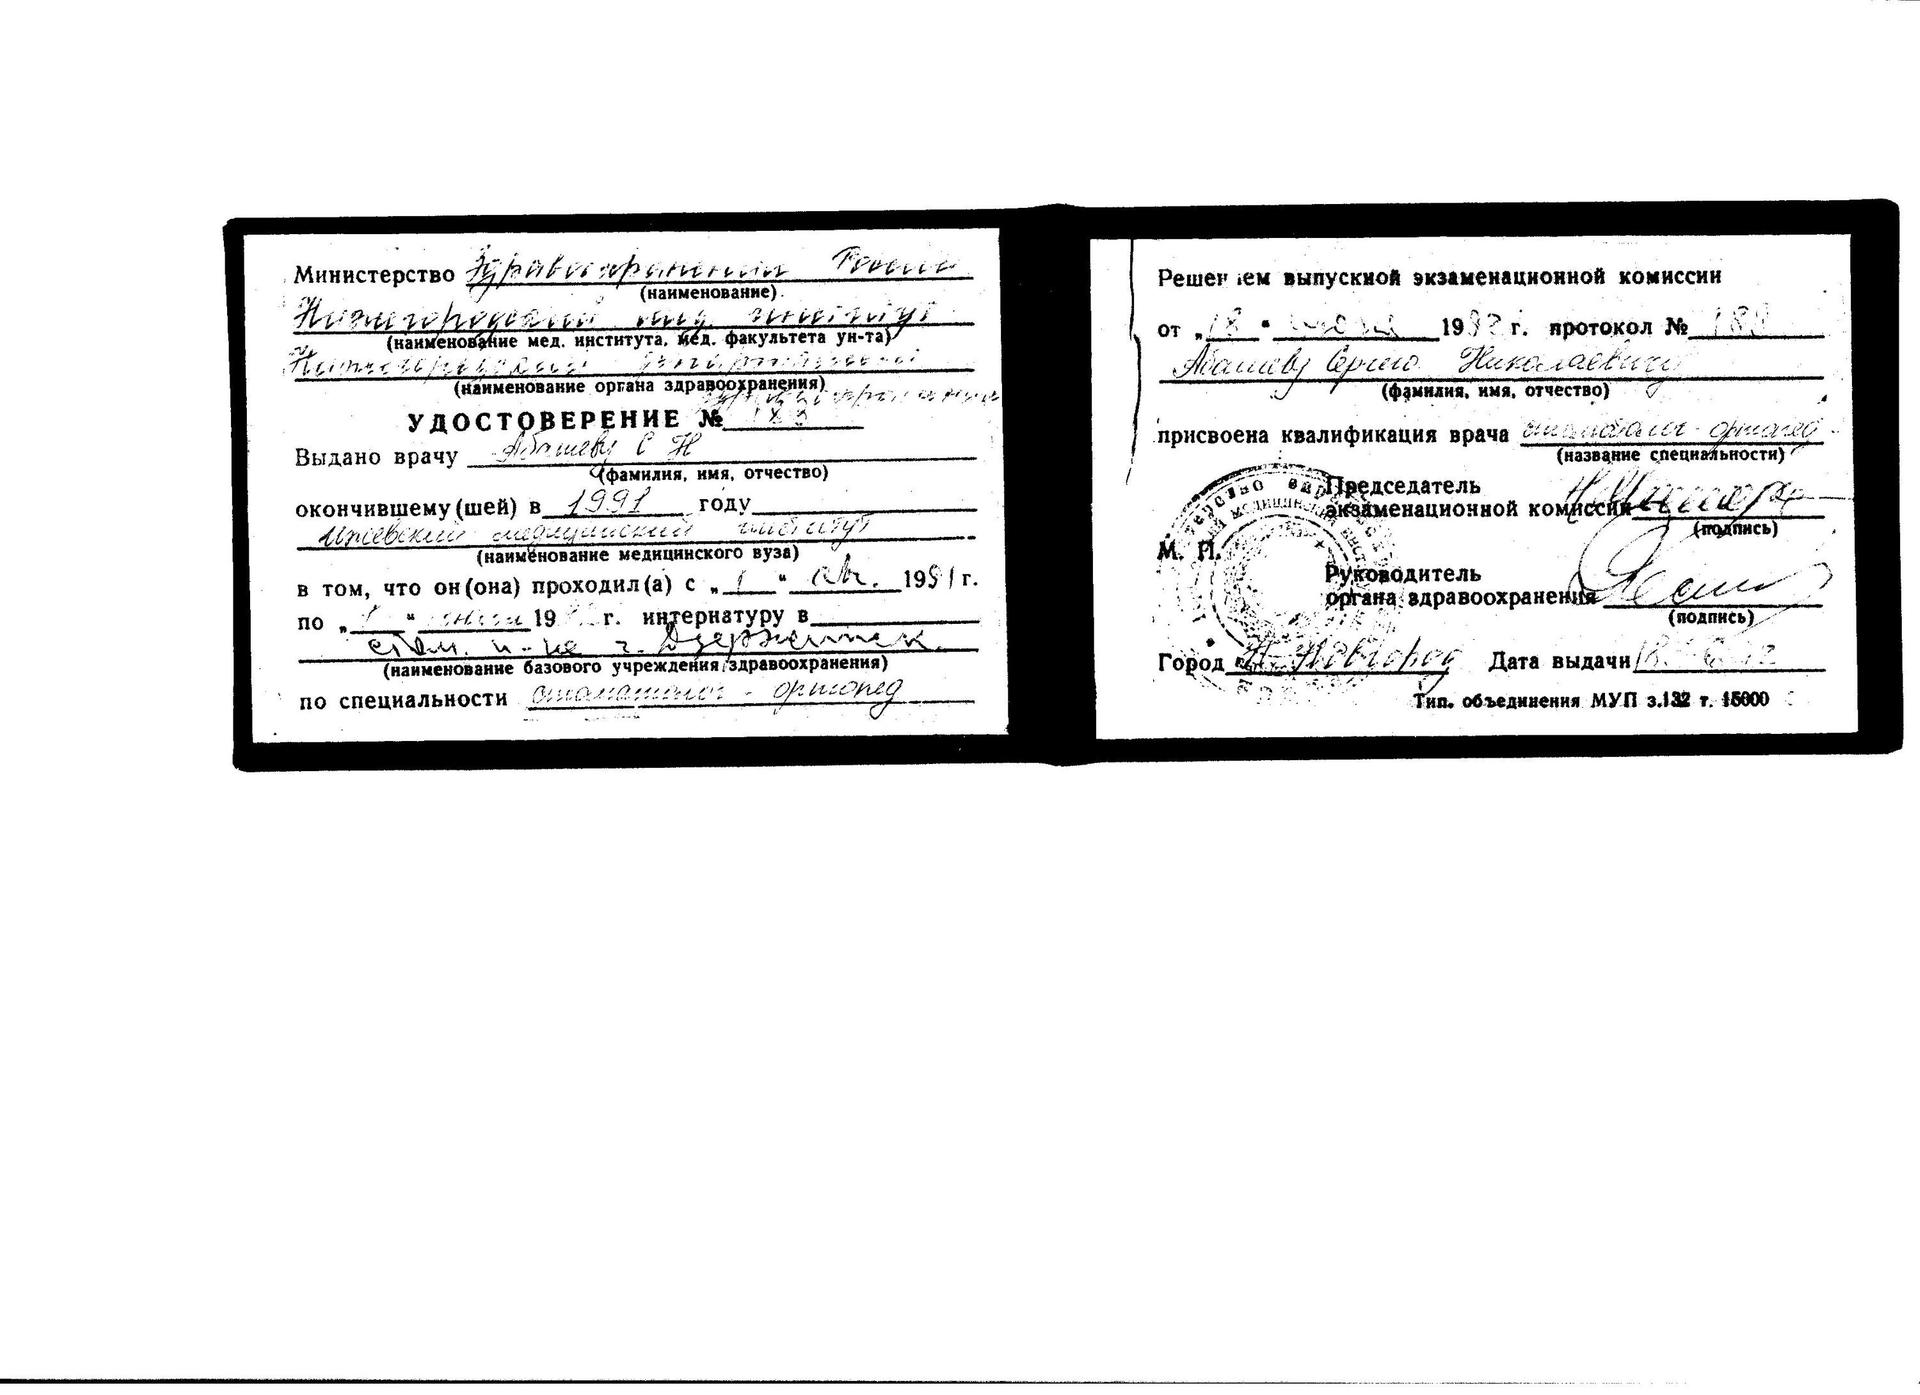 Министерство Здравоохранения России
(наименование)
Нижегородский мед. институт
(наименование мед. института, мед. факультета ун-та)
Нижегородский департамент
(наименование органа здравоохранения)
здравоохранения
УДОСТОВЕРЕНИЕ № 188
Выдано врачу Абашеву С Н
(фамилия, имя, отчество)
окончившему (шей) в 1991 году
Ижевский медицинский институт
(наименование медицинского вуза)
в том, что он (она) проходил(а) с „1" авг. 1991 г.
по „1" июля 19 г. интернатуру в
стом. п-ке г. Дзержинск
(наименование базового учреждения здравоохранения)
по специальности стоматолог-ортопед
Решением выпускной экзаменационной комиссии
от „18" 1992 г. протокол № 188
Абашеву Сергею Николаевичу
(фамилия, имя, отчество)
присвоена квалификация врача стоматолог-ортопед
(название специальности)
Председатель
экзаменационной комиссии
(подпись)
М. П.
Руководитель
органа здравоохранения
(подпись)
Город Н-Новгород Дата выдачи
Тип. объединения МУП з.132 т. 15000